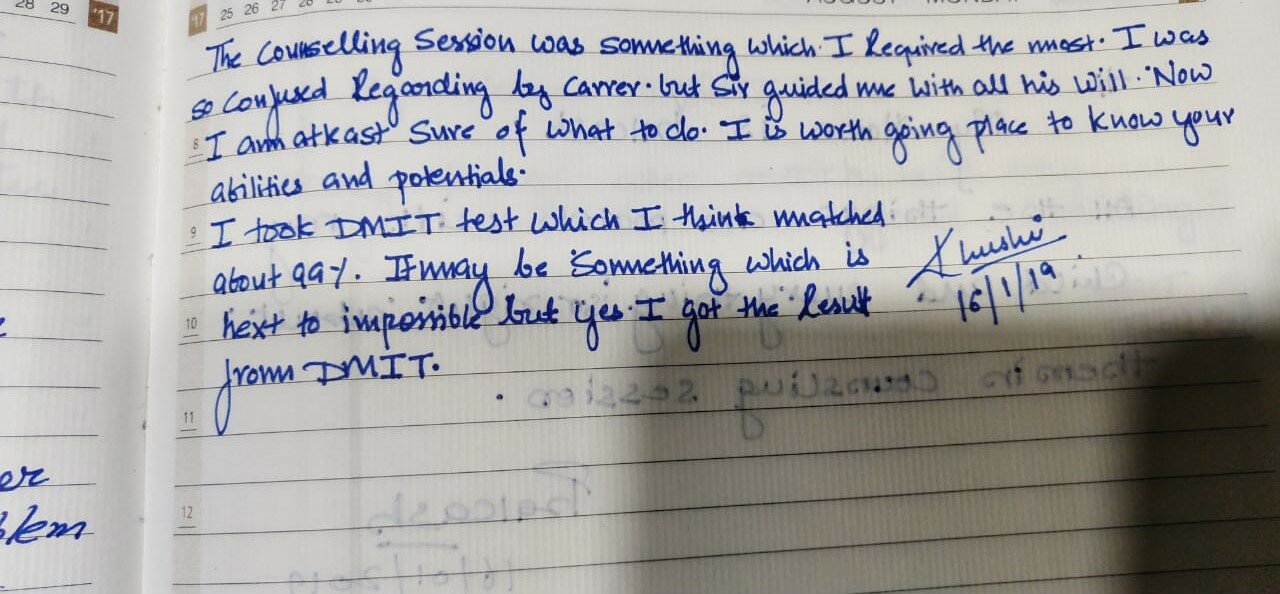 28 29 '17
'17 25 26 27 28
The Counselling Session was something which I Required the most. I was
so Confused Regaording by Carrer. but Sir guided me with all his will. Now
8 I am atleast Sure of what to do. I is worth going place to know your
abilities and potentials.
9 I took DMIT test which I think matched
about 99%. It may be Something which is
Khushi
10 next to impossible but yes. I got the Result
16/1/19
from DMIT.
11
12
er